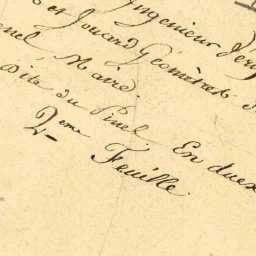 Ingenieur Vér
et Jouard Géomètre
nel Maire
Dite du Pinel. En deux
2eme Feuille.